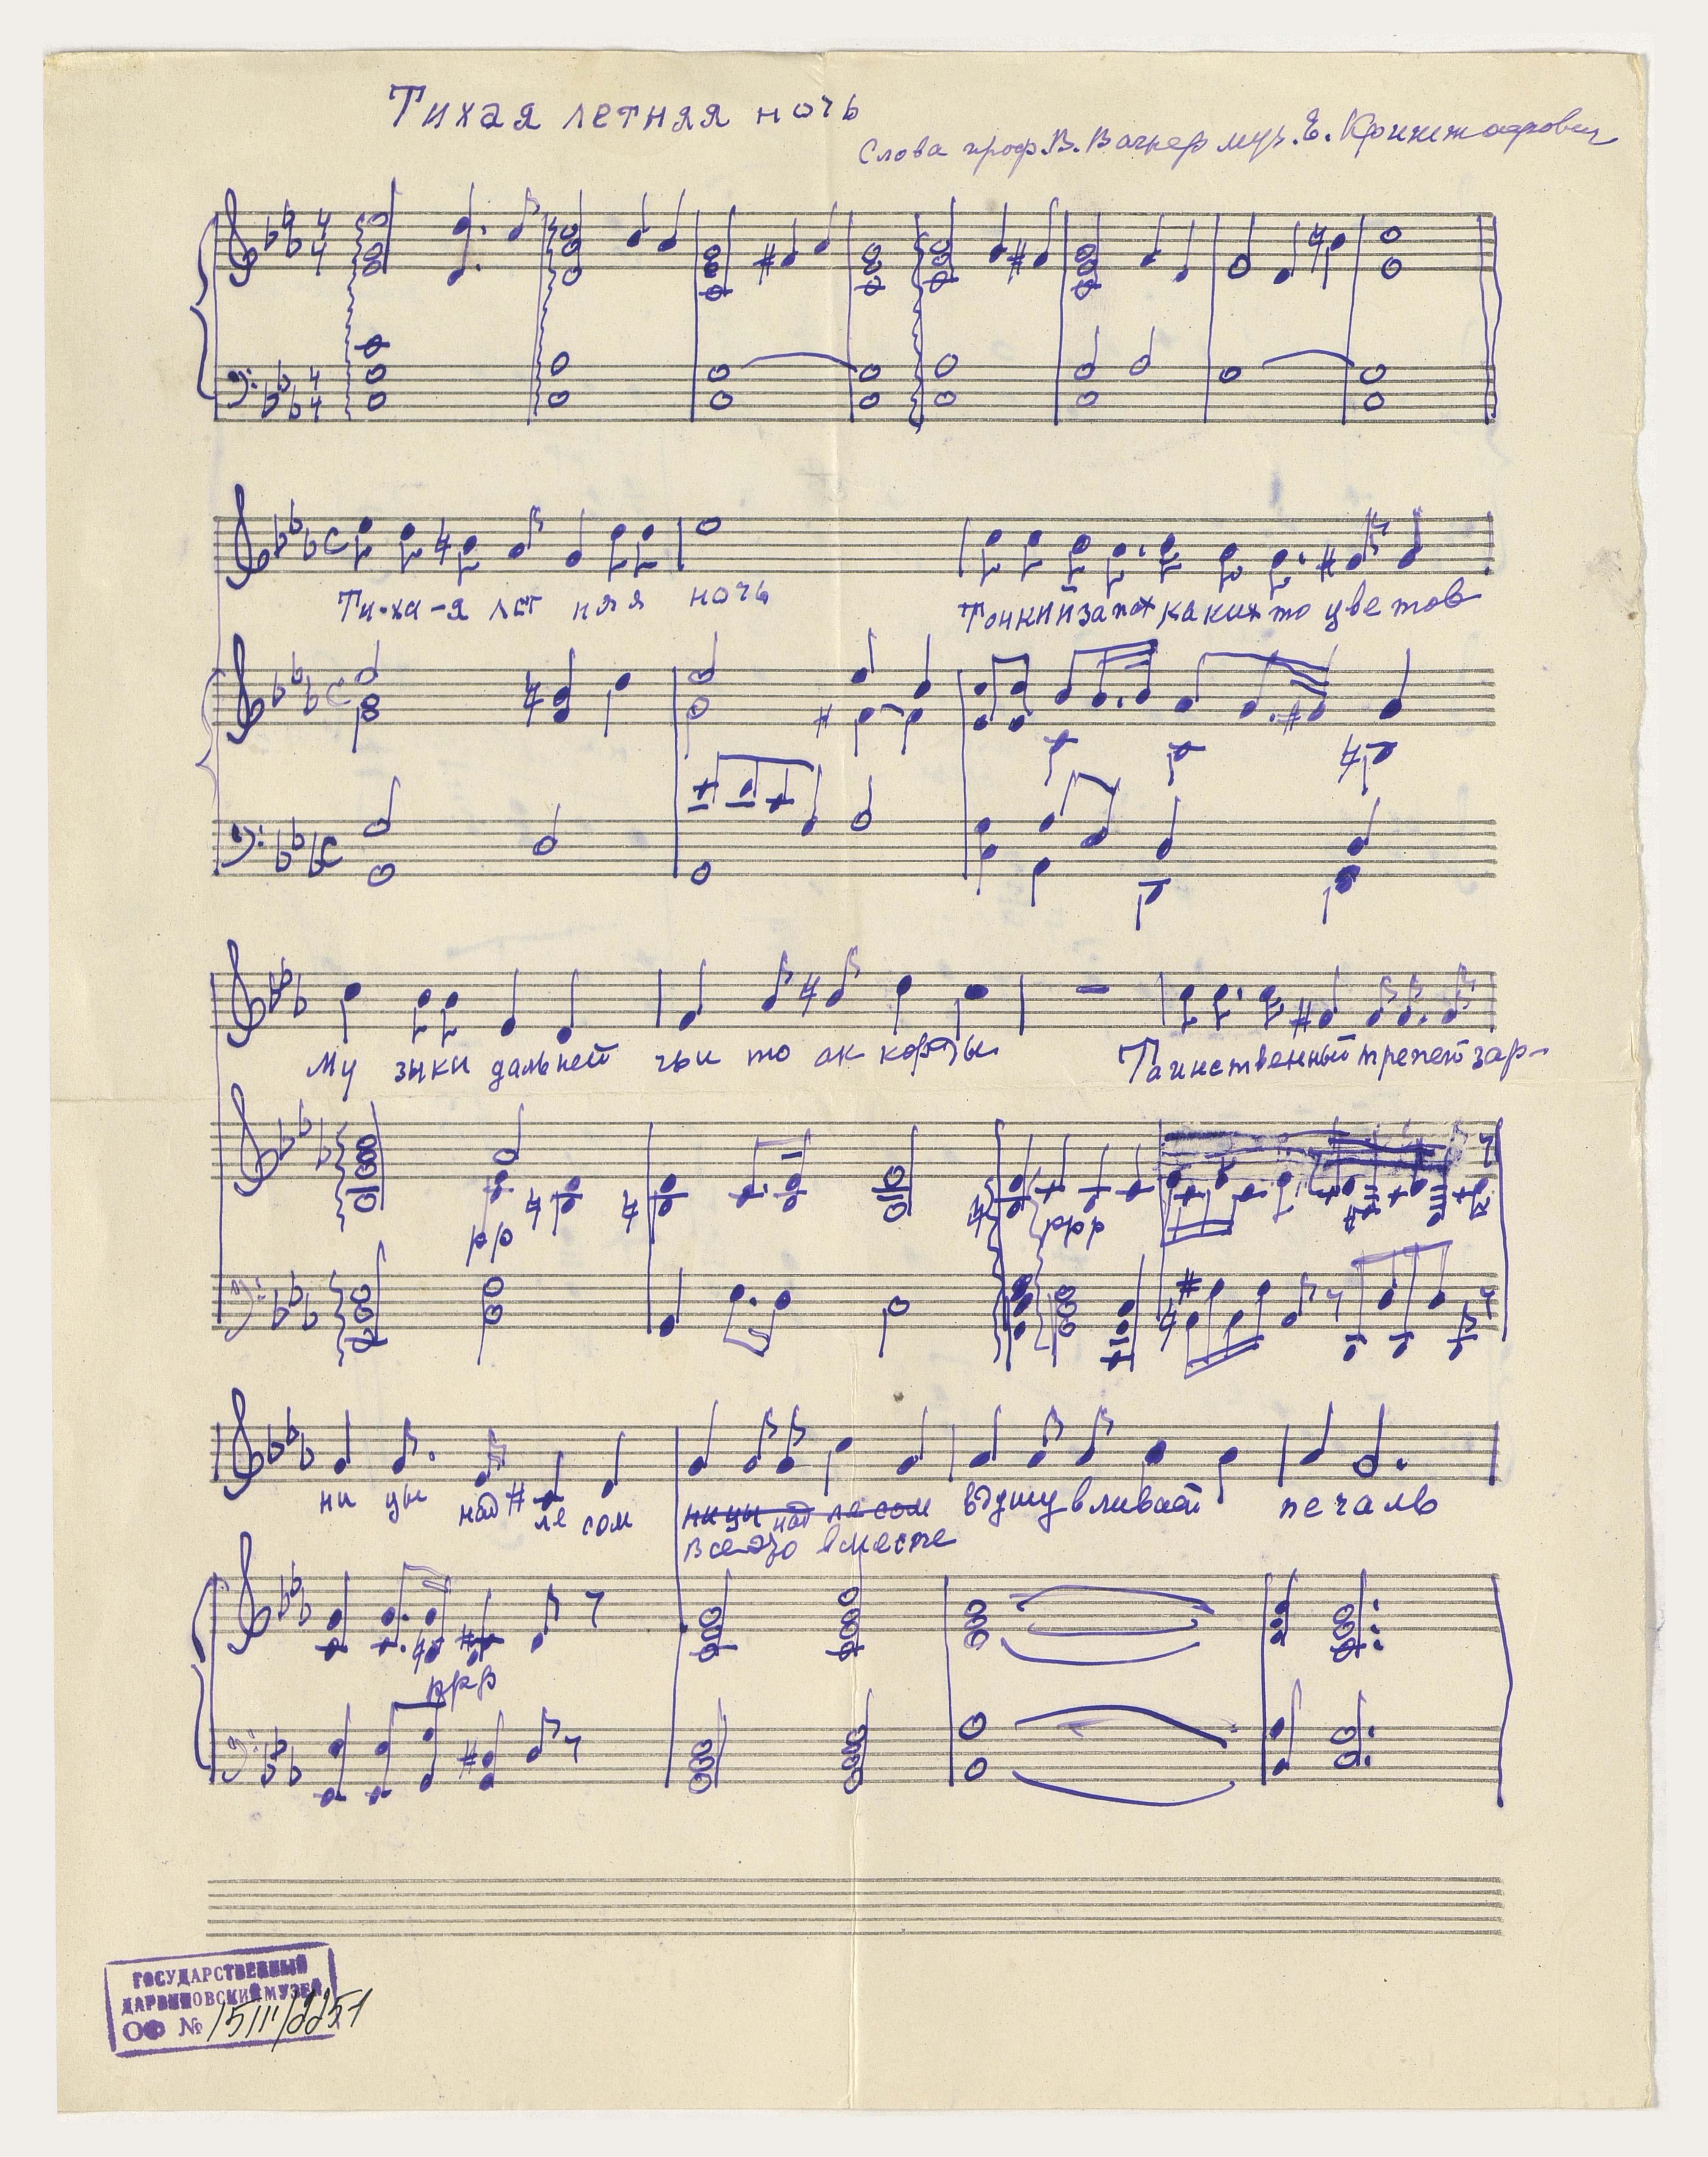 Тихая летняя ночь
Слова проф. В. Вагнер муз. Е. Крижтафович
Ти-ха-я лет няя ночь Тонкий запах каких то цветов
Му зыки дальней чьи то ак корды Таинственный трепет зар-
pp ppp
ни цы над ле сом ницы над ле сом в душу вливает печаль
все это вместе
ppp
ГОСУДАРСТВЕННЫЙ
ДАРВИНОВСКИЙ МУЗЕЙ
ОФ № 15111/2251